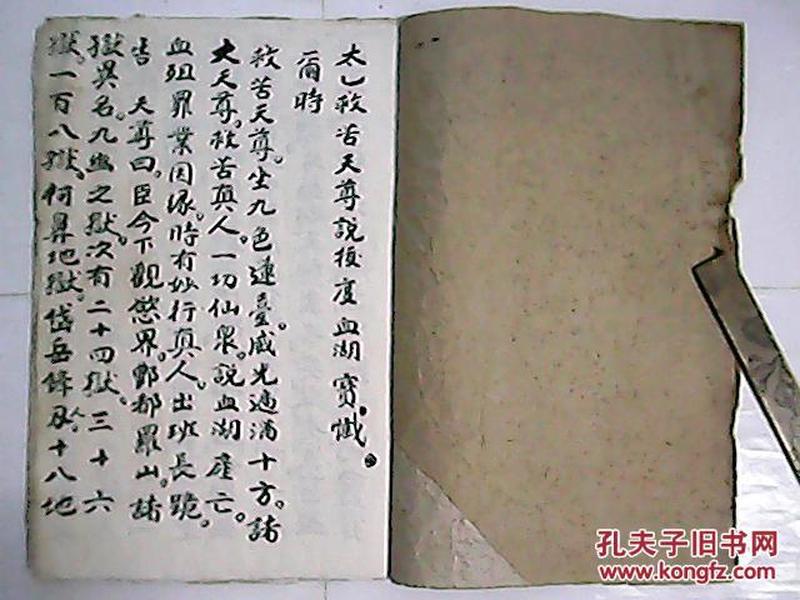 太乙救苦天尊說拔度血湖寳懺。
爾時
救苦天尊。坐九色蓮臺。威光遍滿十方。諸
大天尊。救苦真人。一切仙眾。說血湖產亡。
血㳌罪業因緣。時有妙行真人。出班長跪。
告 天尊曰。臣今下觀慾界。酆都羅山。諸
獄異名。九幽之獄。次有二十四獄。三十六
獄。一百八獄。何鼻地獄。岱岳傺及人。十八地
孔夫子旧书网
www.kongfz.com